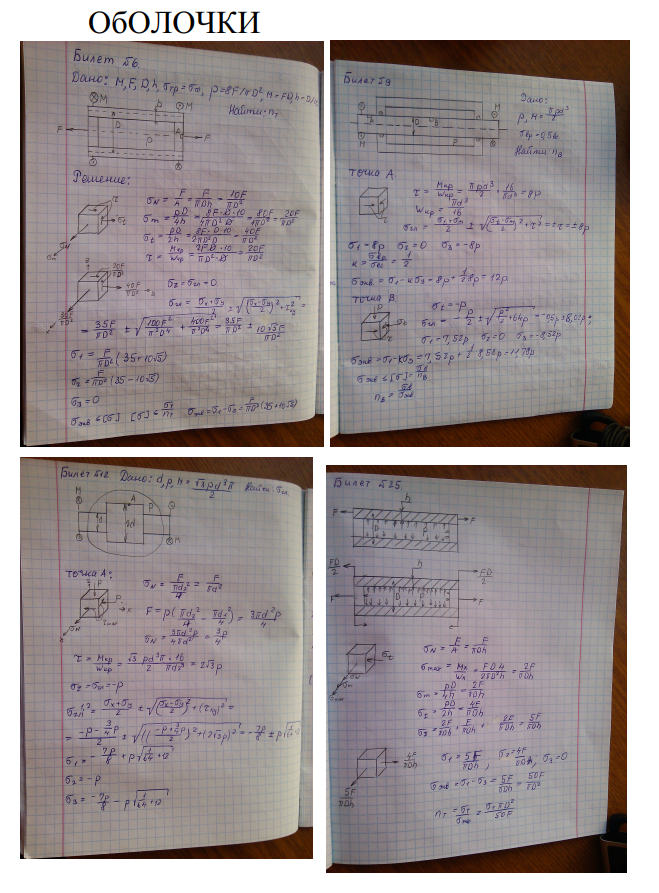 ОбОЛОЧКИ
Билет №6
Дано: M, F, D, h, σтр = σт, p = 8F/πD², M = FD, h = D/10
Найти: nт
Решение:
σN = F/A = F/πDh = 10F/πD²
σm = pD/4h = 8F·D·10/4πD²·D = 80F/4πD² = 20F/πD²
σt = pD/2h = 8F·D·10/2πD²D = 40F/πD²
τ = Mкр/Wкр = 2F·D·10/πD²·D = 20F/πD²
20F/πD²
40F/πD²
35F/πD²
σz = σгл = 0
σгл = σx+σy/2 ± √((σx-σy/2)² + τ²xy) =
= 35F/πD² ± √(100F²/π²D⁴ + 400F²/π²D⁴) = 35F/πD² ± 10√5F/πD²
σ1 = F/πD² (35+10√5)
σ2 = F/πD² (35-10√5)
σ3 = 0
σэкв ≤ [σ] [σ] ≤ σт/nт σэкв = σ1 - σ3 = F/πD² (35+10√5)
Билет №9
Дано:
p, M = πpd³/2
Найти: nв
точка А
τ = Mкр/Wкр = πpd³/2 · 16/πd³ = 8p
Wкр = πd³/16
σгл = σt+σm/2 ± √((σt-σm/2)² + τ²) = ±τ = ±8p
σ1 = 8p σ2 = 0 σ3 = -8p
к = σвр/σвс = 1/2
σэкв = σ1 - кσ3 = 8p + 1/2 8p = 12p
точка В
σt = -p
σгл = -p/2 ± √(p²/4 + 64p²) = -0,5p ± 8,02p;
σ1 = 7,52p σ2 = 0 σ3 = -8,52p
σэкв = σ1 - кσ3 = 7,52p + 1/2 8,52p = 11,78p
σэкв ≤ [σ] = σв/nв
nв = σв/σэкв
Билет №12 Дано: d, p, M = √3pd³π/2 Найти: σгл
точка А:
σN = F/πd²/4 = F/πd²
F = p(πd²/4 - πd²/4) = 3πd²p/4
σN = 3πd²p/4πd² = 3p/4
τ = Mкр/Wкр = √3 pd³π·16/2πd³ = 2√3p
σz = σгл = -p
σгл1,2 = σx+σy/2 ± √((σx-σy/2)² + (τxy)²) =
= -p-3/4p/2 ± √((-p+3/4p/2)² + (2√3p)²) = -7p/8 ± p√(1/64+12)
σ1 = -7p/8 + p√(1/64+12)
σ2 = -p
σ3 = -7p/8 - p√(1/64+12)
Билет №25
FD/2
FD/2
σN = F/A = F/πDh
σmax = Mx/Wx = FD4/2πD²h = 2F/πDh
σm = pD/4h = 2F/πDh
σt = pD/2h = 4F/πDh
σΣ = 2F/πDh + F/πDh + 2F/πDh = 5F/πDh
4F/πDh
5F/πDh
σ1 = 5F/πDh, σ2 = 4F/πDh, σ3 = 0
σэкв = σ1 - σ3 = 5F/πDh = 50F/πD²
nт = σт/σэкв = σтπD²/50F